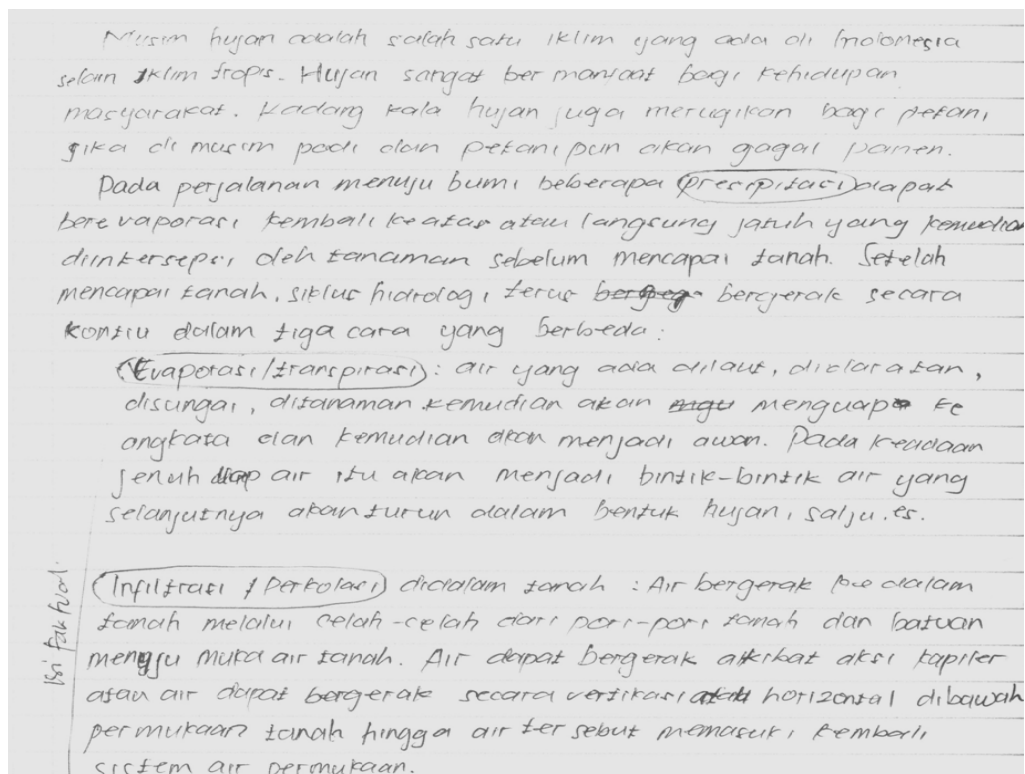 Musim hujan adalah salah satu iklim yang ada di Indonesia
selain iklim tropis. Hujan sangat ber manfaat bagi kehidupan
masyarakat. Kadang kala hujan juga merugikan bagi petani
jika di musim padi dan petanipun akan gagal panen.
Pada perjalanan menuju bumi beberapa presipitasi dapat
berevaporasi kembali keatas atau langsung jatuh yang kemudian
diintersepsi oleh tanaman sebelum mencapai tanah. Setelah
mencapai tanah, siklus hidrologi terus bergerak secara
kontiu dalam tiga cara yang berbeda :
Evaporasi/transpirasi : air yang ada dilaut, didaratan,
disungai, ditanaman kemudian akan menguap ke
angkata dan kemudian akan menjadi awan. Pada keadaan
jenuh uap air itu akan menjadi bintik-bintik air yang
selanjutnya akan turun dalam bentuk hujan, salju, es.
Infiltrasi / Perkolasi didalam tanah : Air bergerak ke dalam
tanah melalui celah-celah dari pori-pori tanah dan batuan
menuju muka air tanah. Air dapat bergerak akibat aksi kapiler
atau air dapat bergerak secara vertikasi atau horizontal dibawah
permukaan tanah hingga air ter sebut memasuki kembali
sistem air permukaan.
Isi faktual.